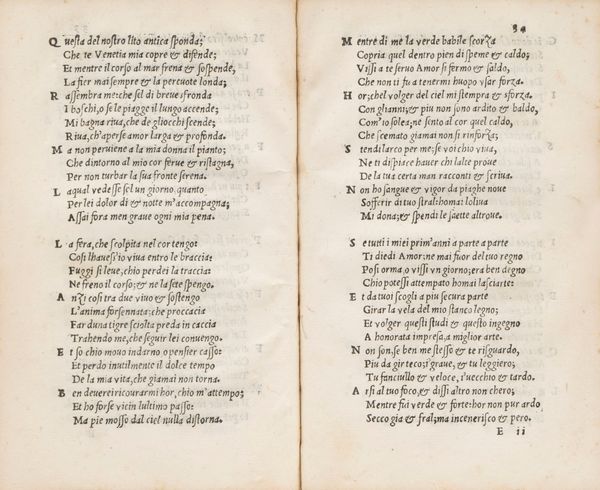 Questa del nostro lito antica sponda;
Che te Venetia mia copre & difende;
Et mentre il corso al mar frena & sospende,
La fier mai sempre & la percuote londa;
Rassembra me: che se'l di breve sfronda
I boschi, o se le piagge il lungo accende;
Mi bagna riva, che de gliocchi scende;
Riva, ch'aperse amor larga & profonda.
Ma non perviene a la mia donna il pianto;
Che dintorno al mio cor ferve & ristagna,
Per non turbar la sua fronte serena.
Laqual vedesse sol un giorno, quanto
Per lei dolor di & notte m'accompagna;
Assai fora men grave ogni mia pena.
La fera, che scolpita nel cor tengo:
Cosi lhavess'io viva entro le braccia:
Fuggi si leve, chio perdei la traccia:
Ne freno il corso; & ne la sete spengo.
Anzi cosi tra due vivo & sostengo
L'anima forsennata; che procaccia
Far duna tigre sciolta preda in caccia
Trahendo me, che seguir lei convengo.
Et so chio movo indarno o pensier casso:
Et perdo inutilmente il dolce tempo
De la mia vita, che giamai non torna.
Ben devrei ricourarmi hor, chio m'attempo;
Et ho forse vicin lultimo passo:
Ma pie mosso dal ciel nulla distorna.
34
Mentre di me la verde habile scorza
Copria quel dentro pien di speme & caldo;
Vissi a te servo Amor si fermo & saldo,
Che non ti fu a tenermi huopo usar forza.
Hor; chel volger del ciel mi stempra & sforza.
Con glianni; & piu non sono ardito & baldo,
Com'io solea; ne sento al cor quel caldo,
Che scemato giamai non si rinforza;
Stendi larco per me; se voi chio viva,
Ne ti dispiace haver chi lalte prove
De la tua certa man racconti & scriva.
Non ho sangue & vigor da piaghe nove
Sofferir di tuo stral: homai loliva
Mi dona; & spendi le saette altrove.
Se tutti i miei prim'anni a parte a parte
Ti diedi Amor; ne mai fuor del tuo regno
Posi orma, o vissi un giorno; era ben degno
Chio potessi attempato homai lasciarte:
Et da tuoi scogli a piu secura parte
Girar la vela del mio stanco legno;
Et volger questi studi & questo ingegno
A honorata impresa, a miglior arte.
Non son, se ben me stesso & te risguardo,
Piu da gir teco; i grave, & tu leggiero;
Tu fanciullo & veloce, i vecchio & tardo.
Arsi al tuo foco, & dissi altro non chero;
Mentre fui verde & forte: hor non pur ardo
Secco gia & fral; ma incenerisco & pero.
E ii